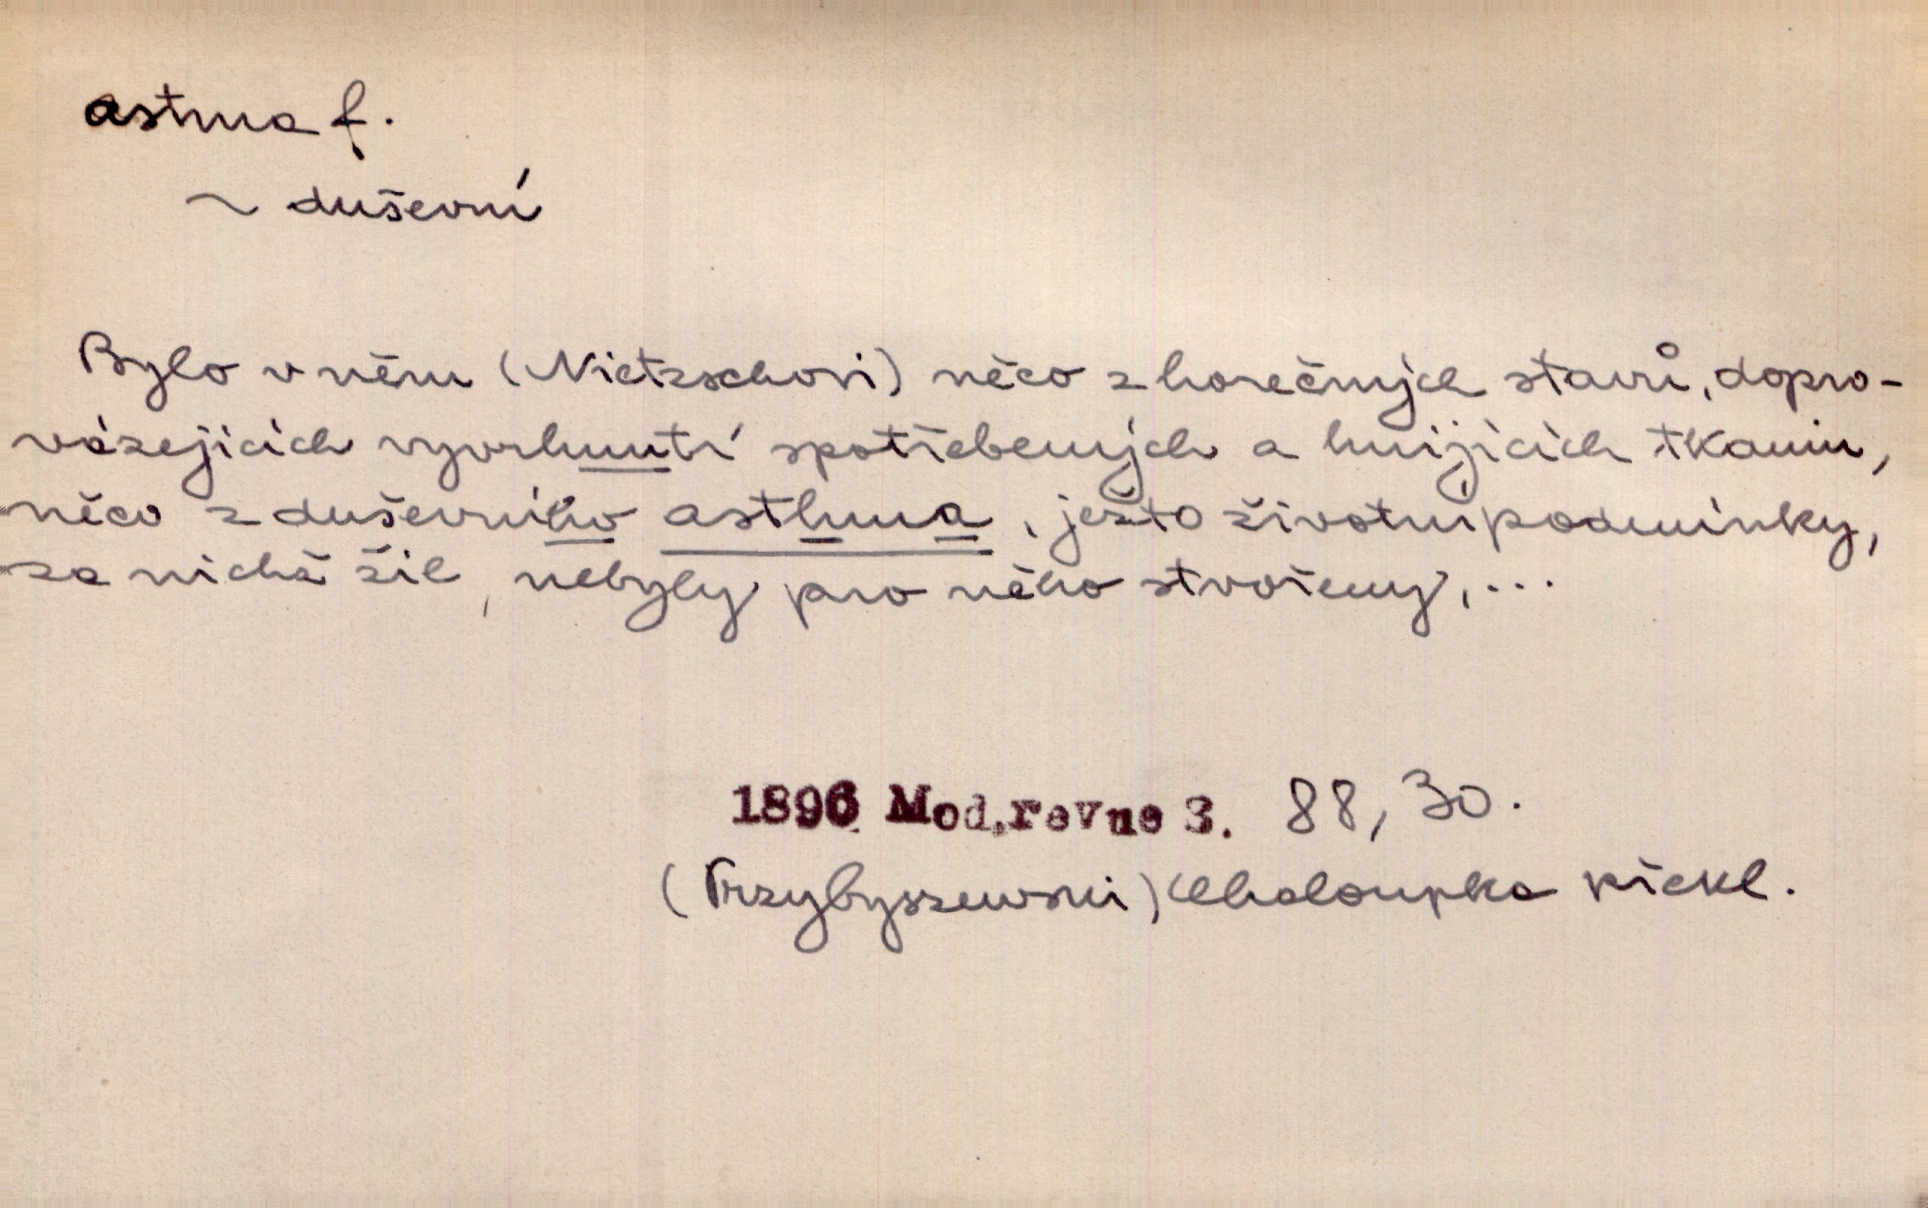 astma f.
~ duševní
Bylo v něm (Nietzschovi) něco z horečných stavů, dopro-
vázejících vyvrhnutí spotřebených a hnijících tkanin,
něco z duševního asthma, ježto životní podmínky,
za nichž žil, nebyly pro něho stvořeny, ...
1896 Mod.revue 3. 88, 30.
(Przybyszewski) Chaloupka překl.